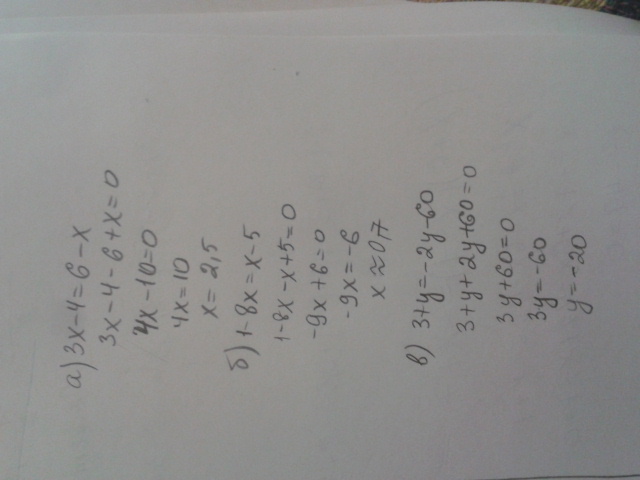 а) 3x-4=6-x
3x-4-6+x=0
4x-10=0
4x=10
x=2,5
б) 1-8x=x-5
1-8x-x+5=0
-9x+6=0
-9x=-6
x≈0,7
в) 3+y=-2y-60
3+y+2y+60=0
3y+60=0
3y=-60
y=-20